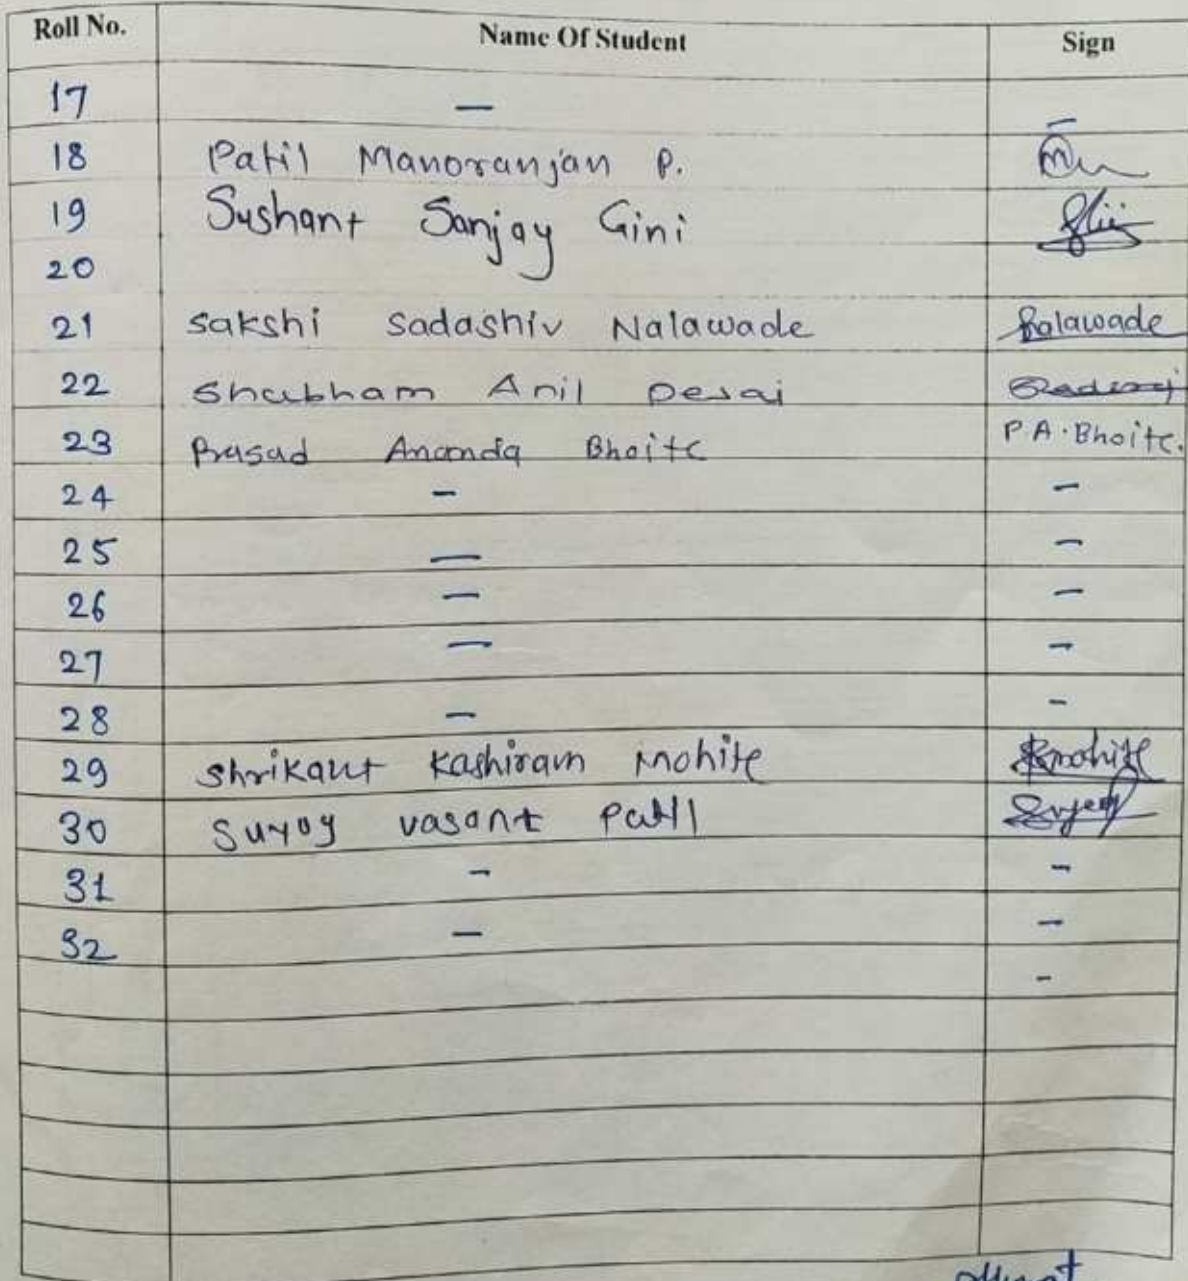 Roll No. Name Of Student Sign
17 — –
18 Patil Manoranjan P.
19 Sushant Sanjay Gini
20
21 Sakshi Sadashiv Nalawade Salawade
22 Shubham Anil Desai
23 Prasad Ananda Bhoite P.A.Bhoite.
24 – –
25 — –
26 – –
27 – –
28 – –
29 Shrikant Kashiram Mohite Skmohite
30 Suyog vasant Patil
31 – –
32 – –
–